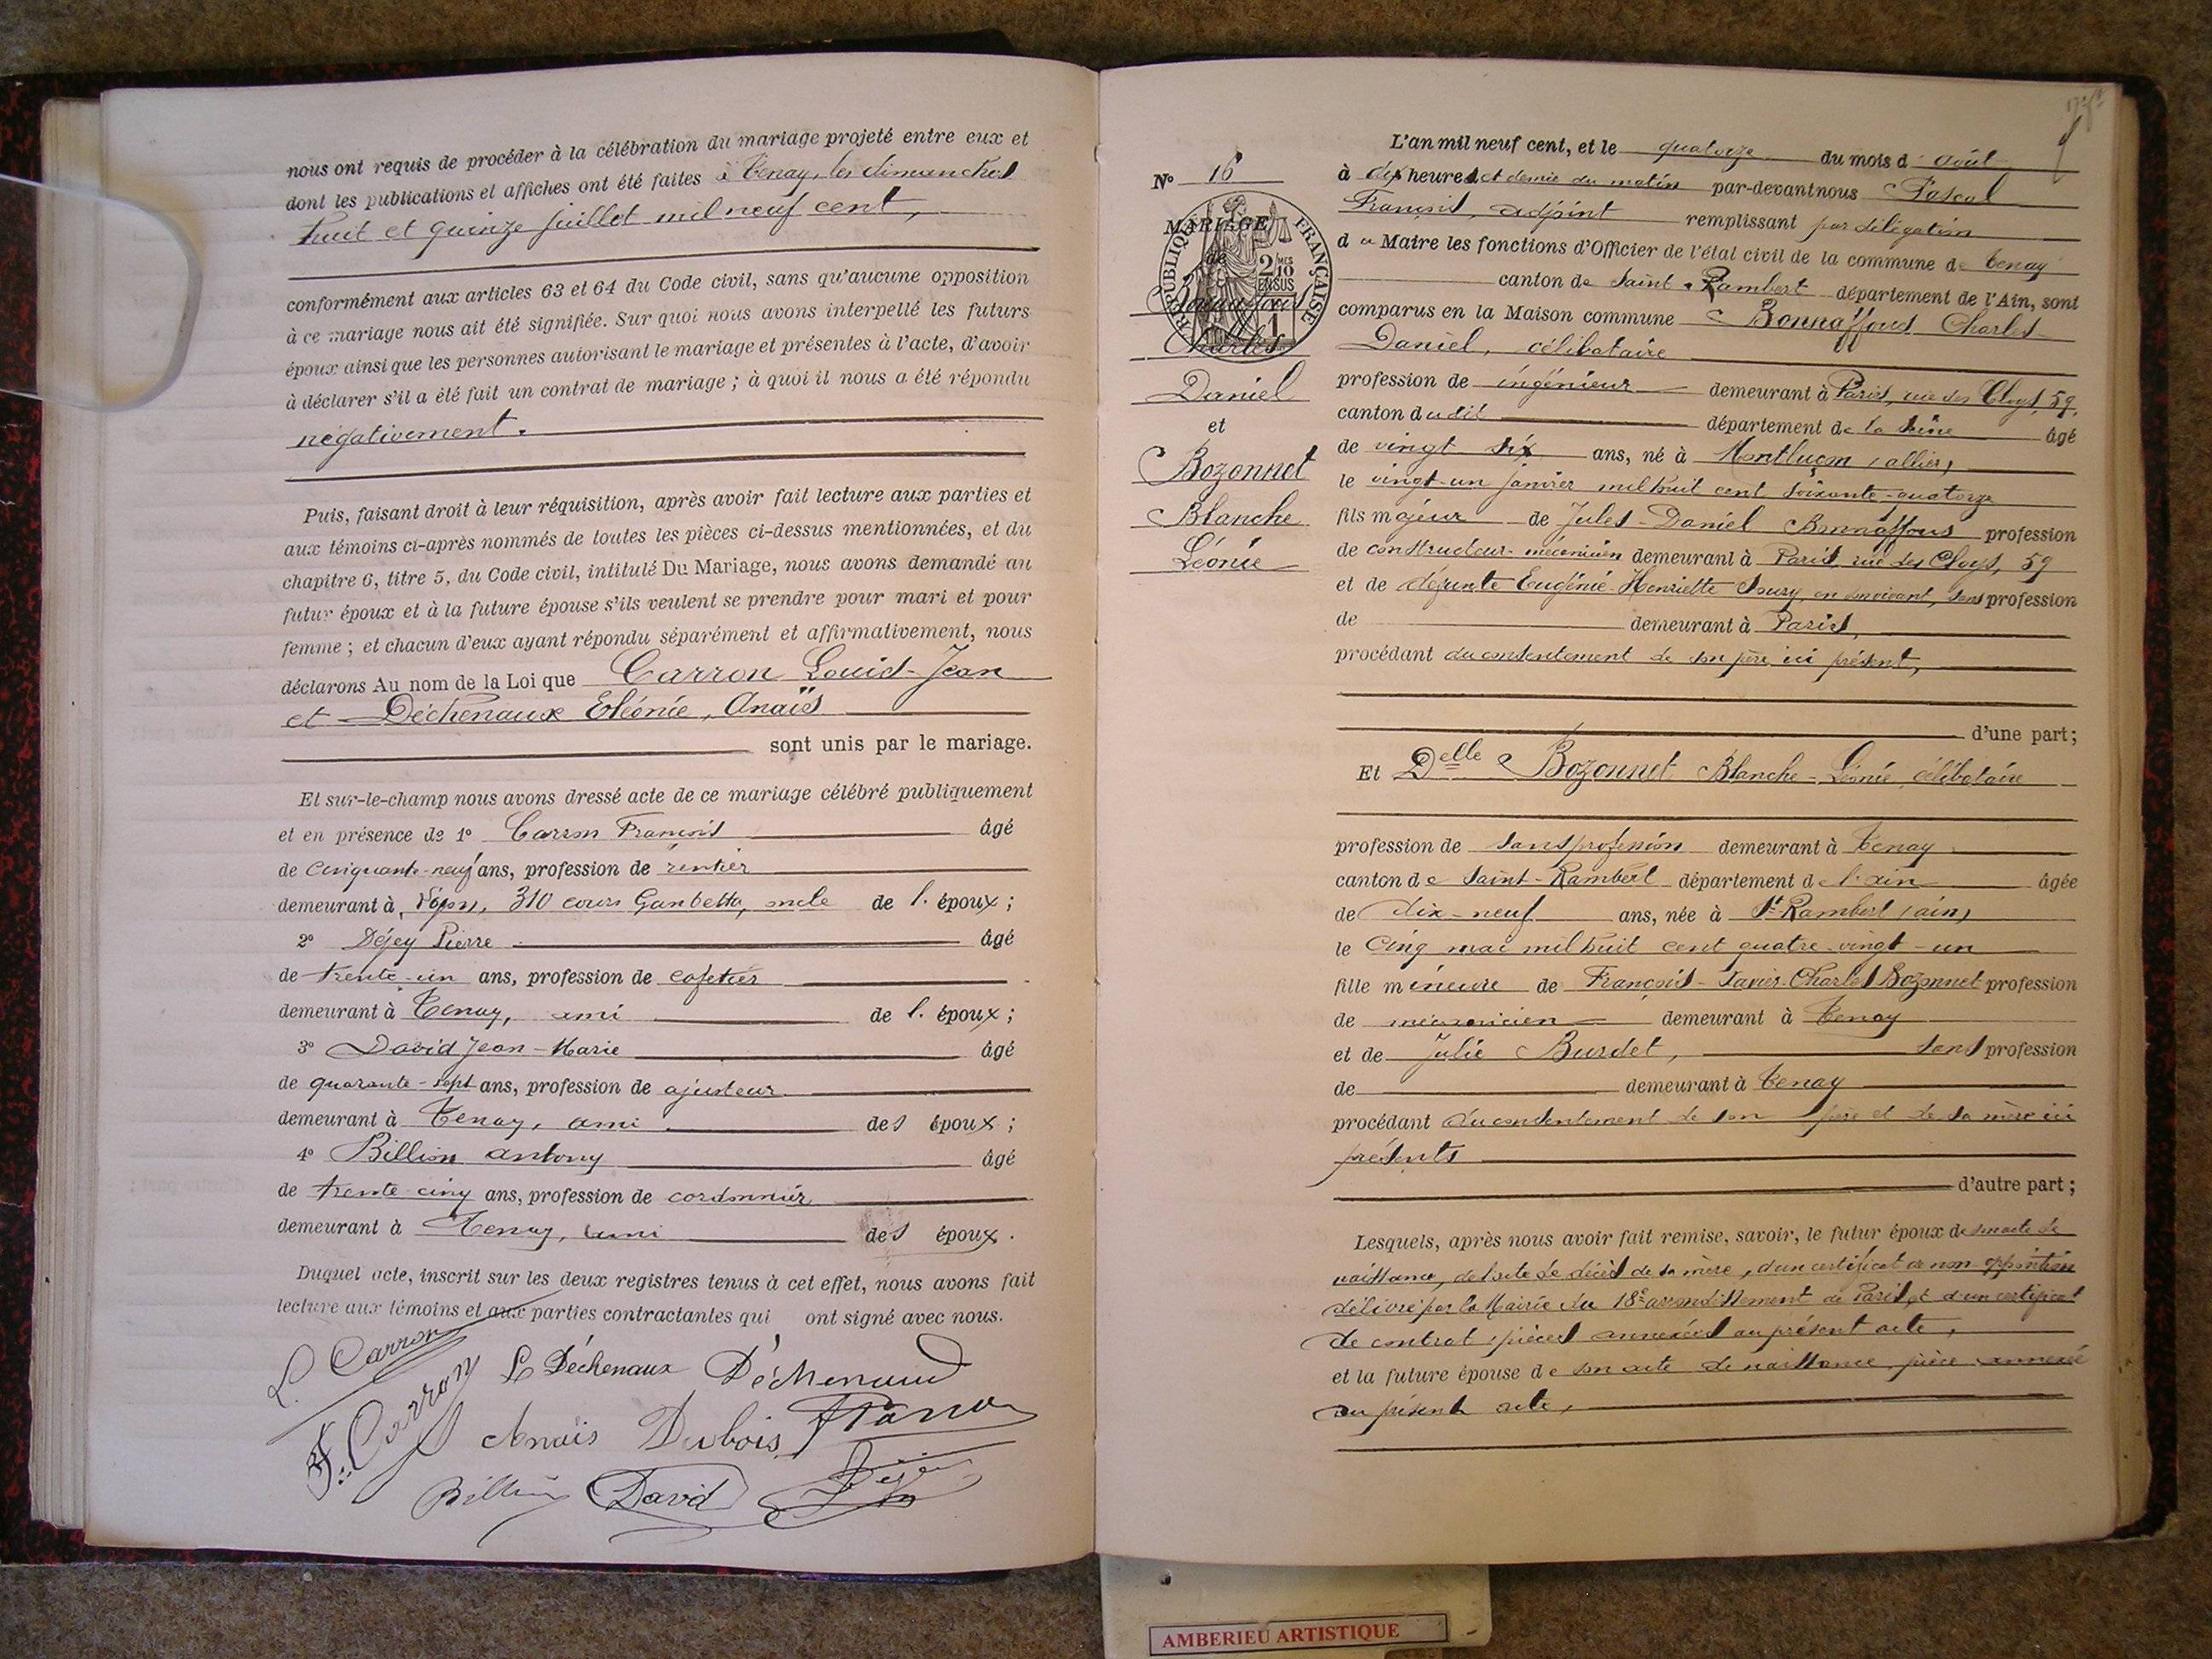 nous ont requis de procéder à la célébration du mariage projeté entre eux et
dont les publications et affiches ont été faites à Tenay, les dimanches
huit et quinze juillet mil neuf cent,
conformément aux articles 63 et 64 du Code civil, sans qu'aucune opposition
à ce mariage nous ait été signifiée. Sur quoi nous avons interpellé les futurs
époux ainsi que les personnes autorisant le mariage et présentes à l'acte, d'avoir
à déclarer s'il a été fait un contrat de mariage ; à quoi il nous a été répondu
négativement.
Puis, faisant droit à leur réquisition, après avoir fait lecture aux parties et
aux témoins ci-après nommés de toutes les pièces ci-dessus mentionnées, et du
chapitre 6, titre 5, du Code civil, intitulé Du Mariage, nous avons demandé au
futur époux et à la future épouse s'ils veulent se prendre pour mari et pour
femme ; et chacun d'eux ayant répondu séparément et affirmativement, nous
déclarons Au nom de la Loi que Carron Louis-Jean
et Déchenaux Eléonie, Anaïs
sont unis par le mariage.
Et sur-le-champ nous avons dressé acte de ce mariage célébré publiquement
et en présence de 1° Carron François âgé
de cinquante-neuf ans, profession de rentier
demeurant à Lyon, 310 cours Gambetta, oncle de l. époux ;
2° Déjey Pierre âgé
de trente-un ans, profession de cafetier
demeurant à Tenay, ami de l. époux ;
3° David Jean-Marie âgé
de quarante-sept ans, profession de ajusteur
demeurant à Tenay, ami des époux ;
4° Billion Antony âgé
de trente cinq ans, profession de cordonnier
demeurant à Tenay, ami des époux.
Duquel acte, inscrit sur les deux registres tenus à cet effet, nous avons fait
lecture aux témoins et aux parties contractantes qui ont signé avec nous.
L. Carron
F. Carron L Déchenaux
Anaïs Dubois
Billion David
N° 16
MARIAGE
de
RÉPUBLIQUE FRANÇAISE
2/10 MES EN SUS
Bonnaffous
Charles
Daniel
et
Bozonnet
Blanche
Léonie
L'an mil neuf cent, et le quatorze du mois d août
à dix heures et demie du matin par-devant nous Pascal
François, adjoint remplissant par délégation
du Maire les fonctions d'Officier de l'état civil de la commune de Tenay
canton de Saint-Rambert département de l'Ain, sont
comparus en la Maison commune Bonnaffous Charles
Daniel, célibataire
profession de ingénieur demeurant à Paris, rue des Cloys, 59,
canton dudit département de la Seine âgé
de vingt six ans, né à Montluçon (Allier)
le vingt-un janvier mil huit cent soixante-quatorze
fils majeur de Jules-Daniel Bonnaffous profession
de constructeur-mécanicien demeurant à Paris, rue des Cloys, 59
et de défunte Eugénie-Henriette Soury, en son vivant, sans profession
de demeurant à Paris,
procédant du consentement de son père ici présent,
d'une part ;
Et Delle Bozonnet Blanche-Léonie, célibataire
profession de sans profession demeurant à Tenay
canton de Saint-Rambert département de l'Ain âgée
de dix-neuf ans, née à St Rambert (Ain)
le cinq mai mil huit cent quatre-vingt-un
fille mineure de François-Xavier-Charles Bozonnet profession
de mécanicien demeurant à Tenay
et de Julie Burdet, sans profession
de demeurant à Tenay
procédant du consentement de son père et de sa mère ici
présents
d'autre part ;
Lesquels, après nous avoir fait remise, savoir, le futur époux de son acte de
naissance, de l'acte de décès de sa mère, d'un certificat de non opposition
délivré par la Mairie du 18e arrondissement de Paris, et d'un certificat
de contrat, pièces annexées au présent acte,
et la future épouse de son acte de naissance, pièce annexée
au présent acte,
AMBERIEU ARTISTIQUE